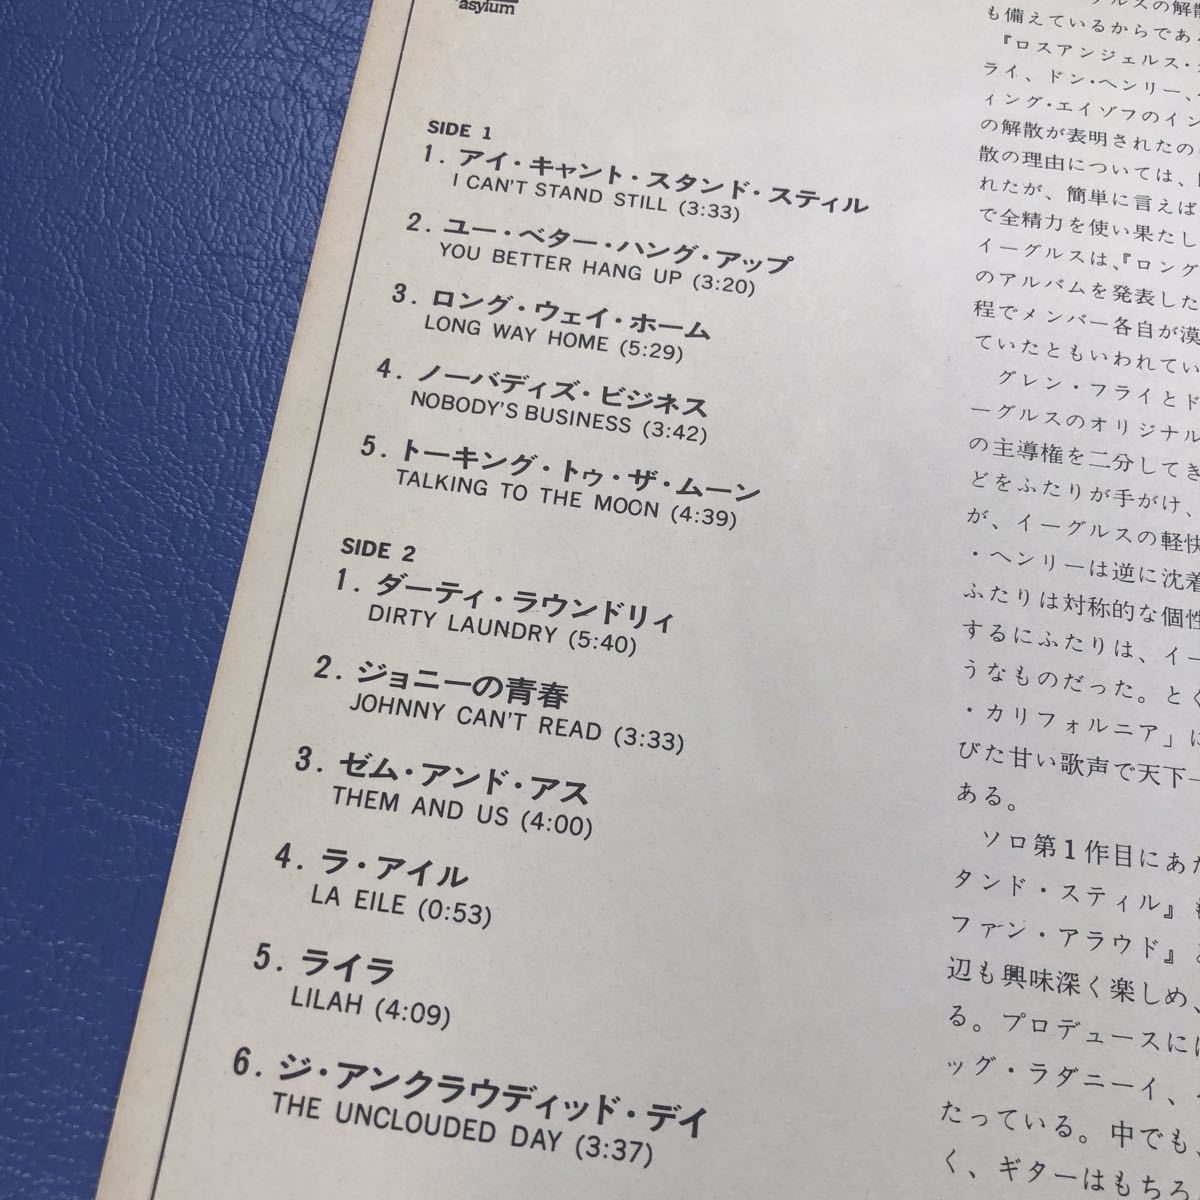 asylum
SIDE 1
1. アイ・キャント・スタンド・スティル
I CAN'T STAND STILL (3:33)
2. ユー・ベター・ハング・アップ
YOU BETTER HANG UP (3:20)
3. ロング・ウェイ・ホーム
LONG WAY HOME (5:29)
4. ノーバディズ・ビジネス
NOBODY'S BUSINESS (3:42)
5. トーキング・トゥ・ザ・ムーン
TALKING TO THE MOON (4:39)
SIDE 2
1. ダーティ・ラウンドリィ
DIRTY LAUNDRY (5:40)
2. ジョニーの青春
JOHNNY CAN'T READ (3:33)
3. ゼム・アンド・アス
THEM AND US (4:00)
4. ラ・アイル
LA EILE (0:53)
5. ライラ
LILAH (4:09)
6. ジ・アンクラウディッド・デイ
THE UNCLOUDED DAY (3:37)
グルスの解散
も備えているからであ
『ロスアンジェルス・
ライ、ドン・ヘンリー、
ィング・エイゾフのイン
の解散が表明されたの
散の理由については、
れたが、簡単に言えば
で全精力を使い果たし
イーグルスは、『ロング
のアルバムを発表した
程でメンバー各自が漠
ていたともいわれてい
グレン・フライとド
ーグルスのオリジナル
の主導権を二分してき
どをふたりが手がけ、
が、イーグルスの軽快
・ヘンリーは逆に沈着
ふたりは対称的な個性
するにふたりは、イー
うなものだった。とく
・カリフォルニア」に
びた甘い歌声で天下一
ある。
ソロ第1作目にあた
タンド・スティル』も
ファン・アラウド』と
辺も興味深く楽しめ、
る。プロデュースには
ッグ・ラダニーイ、
たっている。中でも、
く、ギターはもちろ